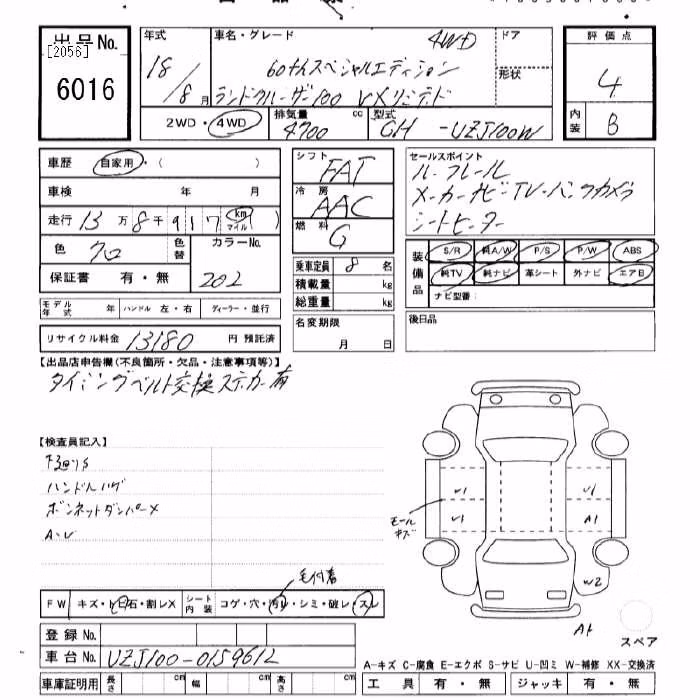 出品No.
[2056]
6016
年式
18/8月
車名・グレード
4WD
60thスペシャルエディション
ランドクルーザー100 VXリミテド
ドア
形状
評価点
4
内装
B
2WD・4WD
排気量
4700 cc
型式
GH-UZJ100W
車歴 自家用・( )
車検 年 月
走行 13万8千917 km マイル ( )
色 クロ
色替
カラーNo.
202
保証書 有・無
モデル年式 年 ハンドル 左・右 ディーラー・並行
リサイクル料金 13180 円 預託済
シフト
FAT
冷房
AAC
燃料
G
乗車定員 8 名
積載量 kg
総重量 kg
名変期限
月 日
セールスポイント
ルーフレール
メーカーナビTV-バックカメラ
シートヒーター
装備品
S/R 純A/W P/S P/W ABS
純TV 純ナビ 革シート 外ナビ エアB
ナビ型番:
後日品
【出品店申告欄(不良箇所・欠品・注意事項等)】
タイミングベルト交換ステッカー有
【検査員記入】
下回りS
ハンドルハゲ
ボンネットダンパーX
A・U
モール
キズ
U1
U1
U1
A1
W2
A1
スペア
毛付着
FW キズ・ヒビ石・割レX
シート内装 コゲ・穴・汚レ・シミ・破レ・スレ
登録No.
車台No. UZJ100-0159612
車庫証明用 長さ cm 幅 cm 高さ cm
A-キズ C-腐食 E-エクボ S-サビ U-凹ミ W-補修 XX-交換済
工具 有・無 ジャッキ 有・無